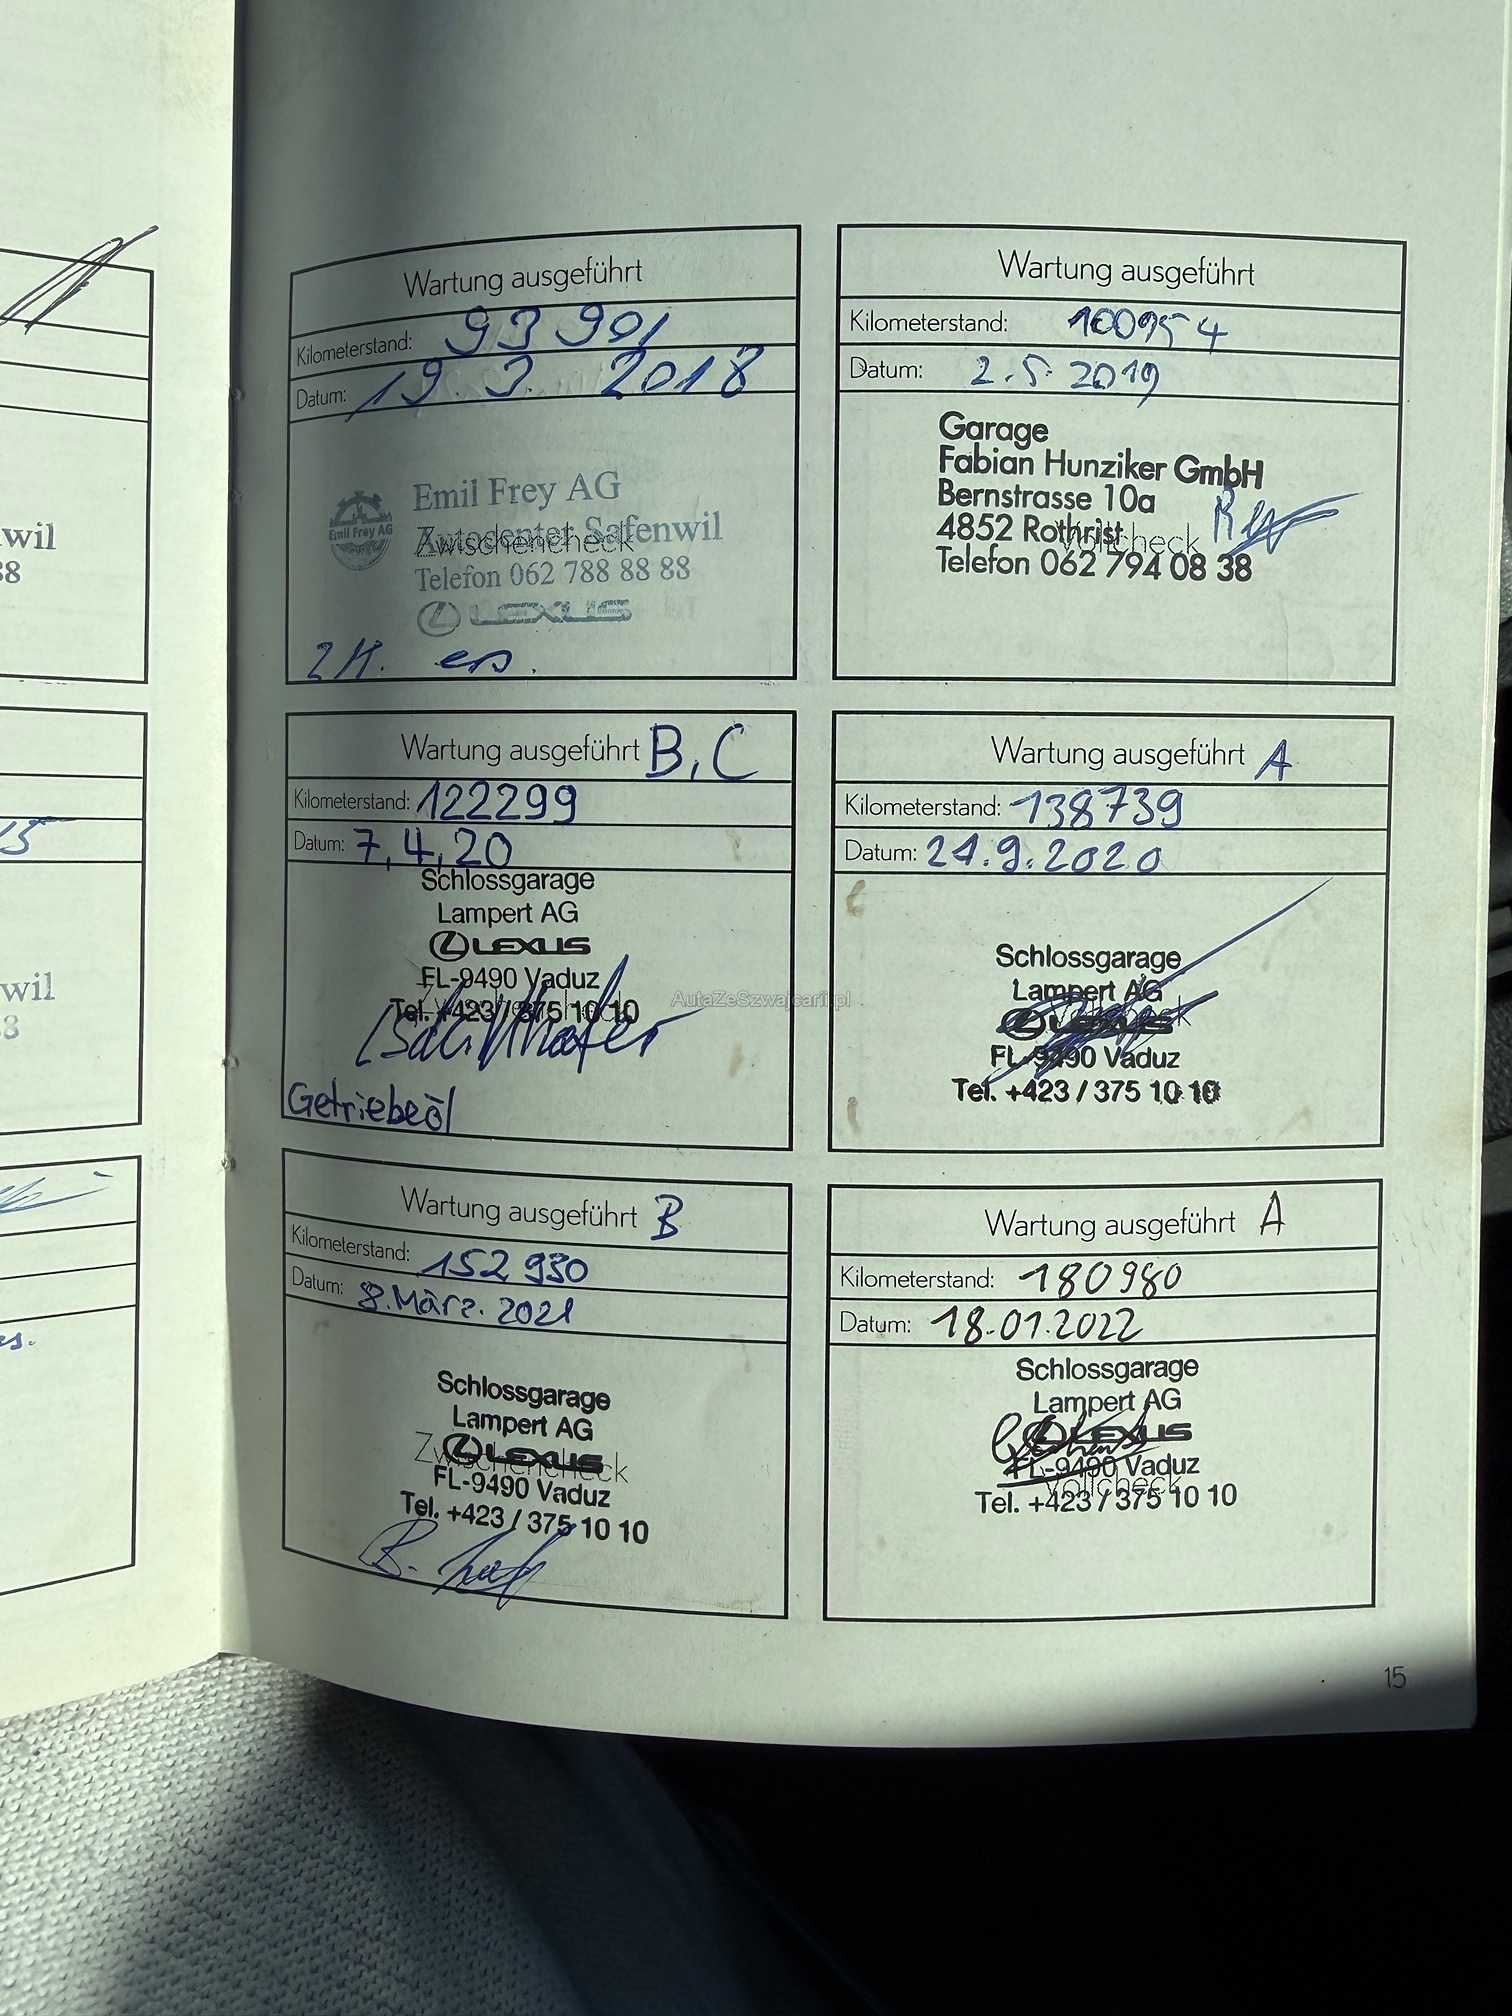 wil
88
15
wil
88
es.
Wartung ausgeführt
Kilometerstand: 93 901
Datum: 19. 3. 2018
Emil Frey AG
Emil Frey AG
Autocenter Safenwil
Zwischencheck
Telefon 062 788 88 88
LEXUS
Wartung ausgeführt
Kilometerstand: 100954
Datum: 2.5.2019
Garage
Fabian Hunziker GmbH
Bernstrasse 10a
4852 Rothrist
Vollcheck
Telefon 062 794 08 38
Wartung ausgeführt B, C
Kilometerstand: 122299
Datum: 7,4,20
Schlossgarage
Lampert AG
LEXUS
FL-9490 Vaduz
Zwischencheck
Tel. +423 / 375 10 10
Getriebeöl
Wartung ausgeführt A
Kilometerstand: 138739
Datum: 21.9.2020
Schlossgarage
Lampert AG
Vollcheck
LEXUS
FL-9490 Vaduz
Tel. +423 / 375 10 10
AutaZeSzwajcarii.pl
Wartung ausgeführt B
Kilometerstand: 152 930
Datum: 8. März. 2021
Schlossgarage
Lampert AG
LEXUS
Zwischencheck
FL-9490 Vaduz
Tel. +423 / 375 10 10
Wartung ausgeführt A
Kilometerstand: 180980
Datum: 18.01.2022
Schlossgarage
Lampert AG
LEXUS
FL-9490 Vaduz
Vollcheck
Tel. +423 / 375 10 10
15